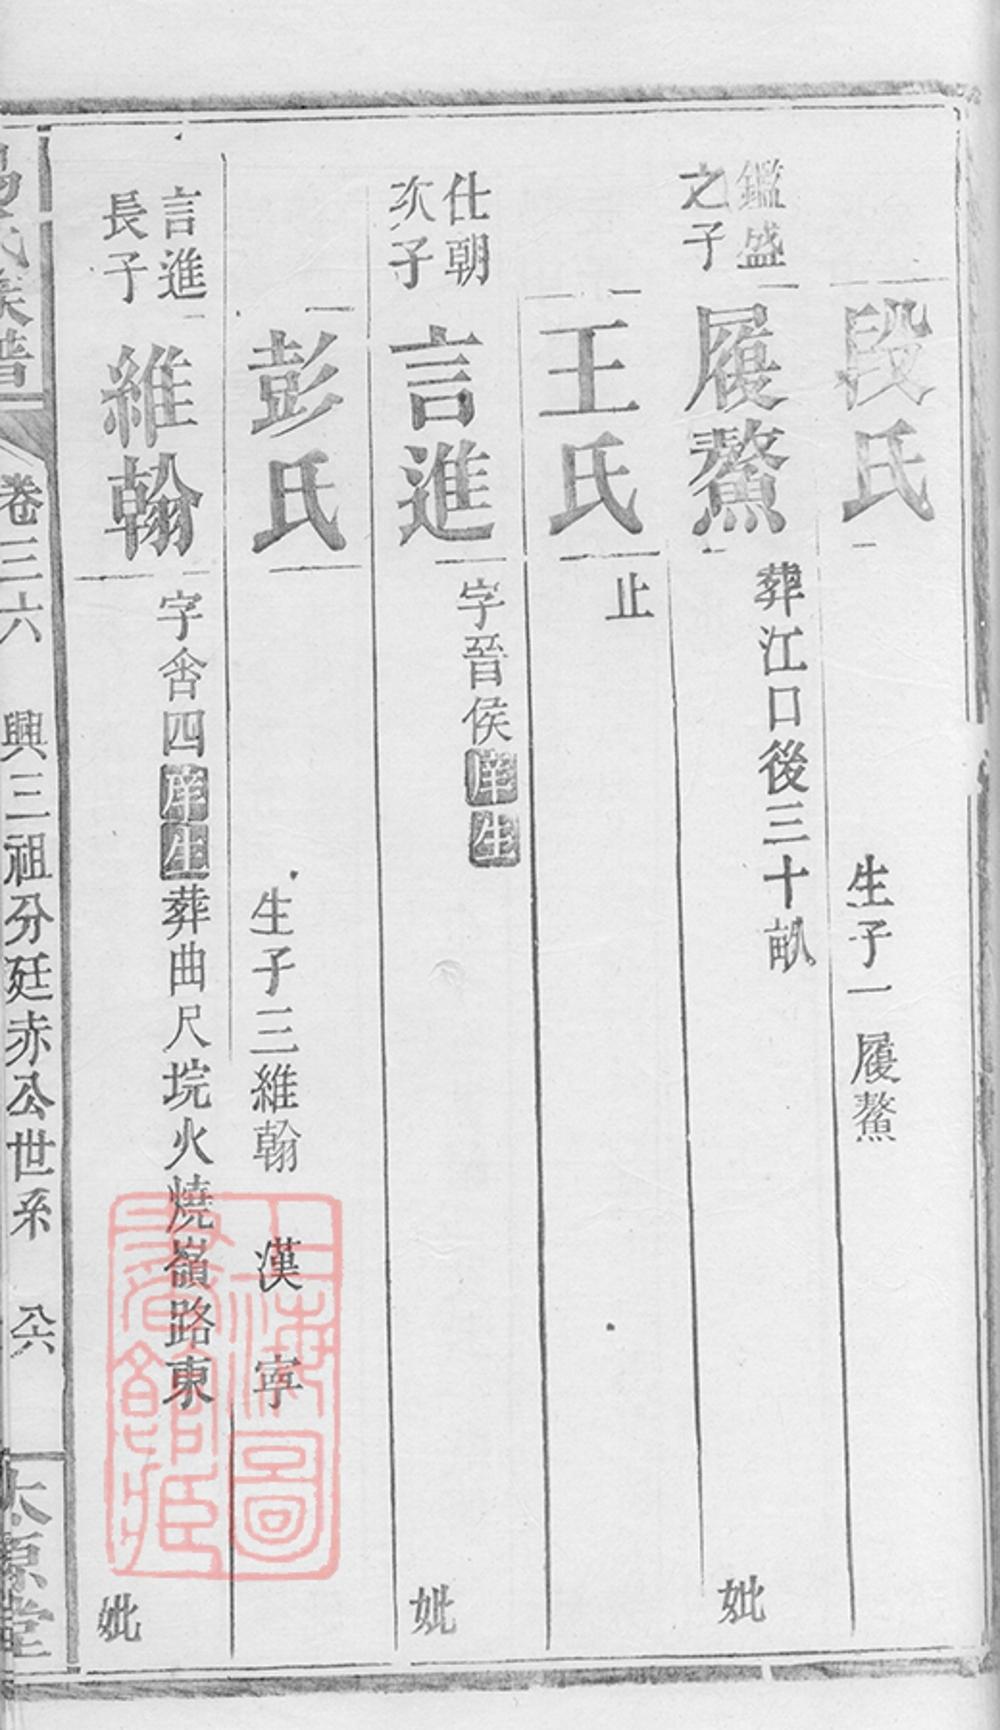 段氏 生子一履鰲
鑑盛
之子
履鰲 葬江口後三十畝 妣
王氏 止
仕朝
次子
言進 字晉侯庠生 妣
彭氏 生子三維翰 漢 寧
言進
長子
維翰 字舍四庠生葬曲尺垸火燒嶺路東 妣
氏族譜 卷三六 興三祖分廷赤公世系 六 太原堂
上海圖
書館藏